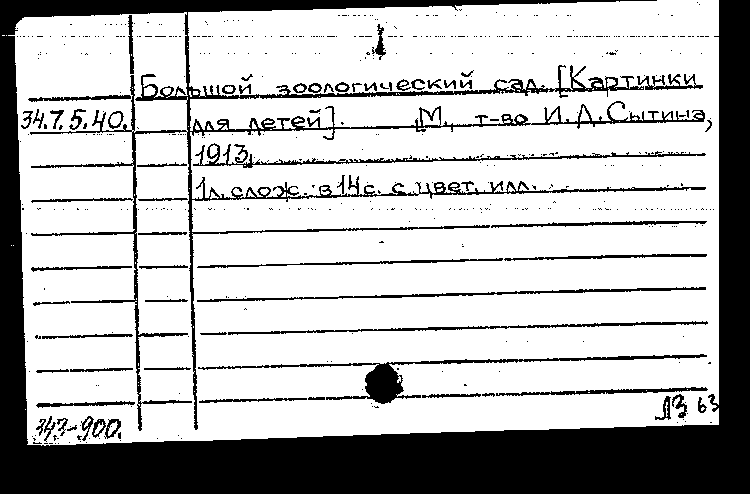 Большой зоологический сад. [Картинки
34.7.5.40. для детей]. М., т-во И.Д.Сытина,
1913.
1л. слож. в 14с. с цвет. илл.
343-900.
ЛЗ 63